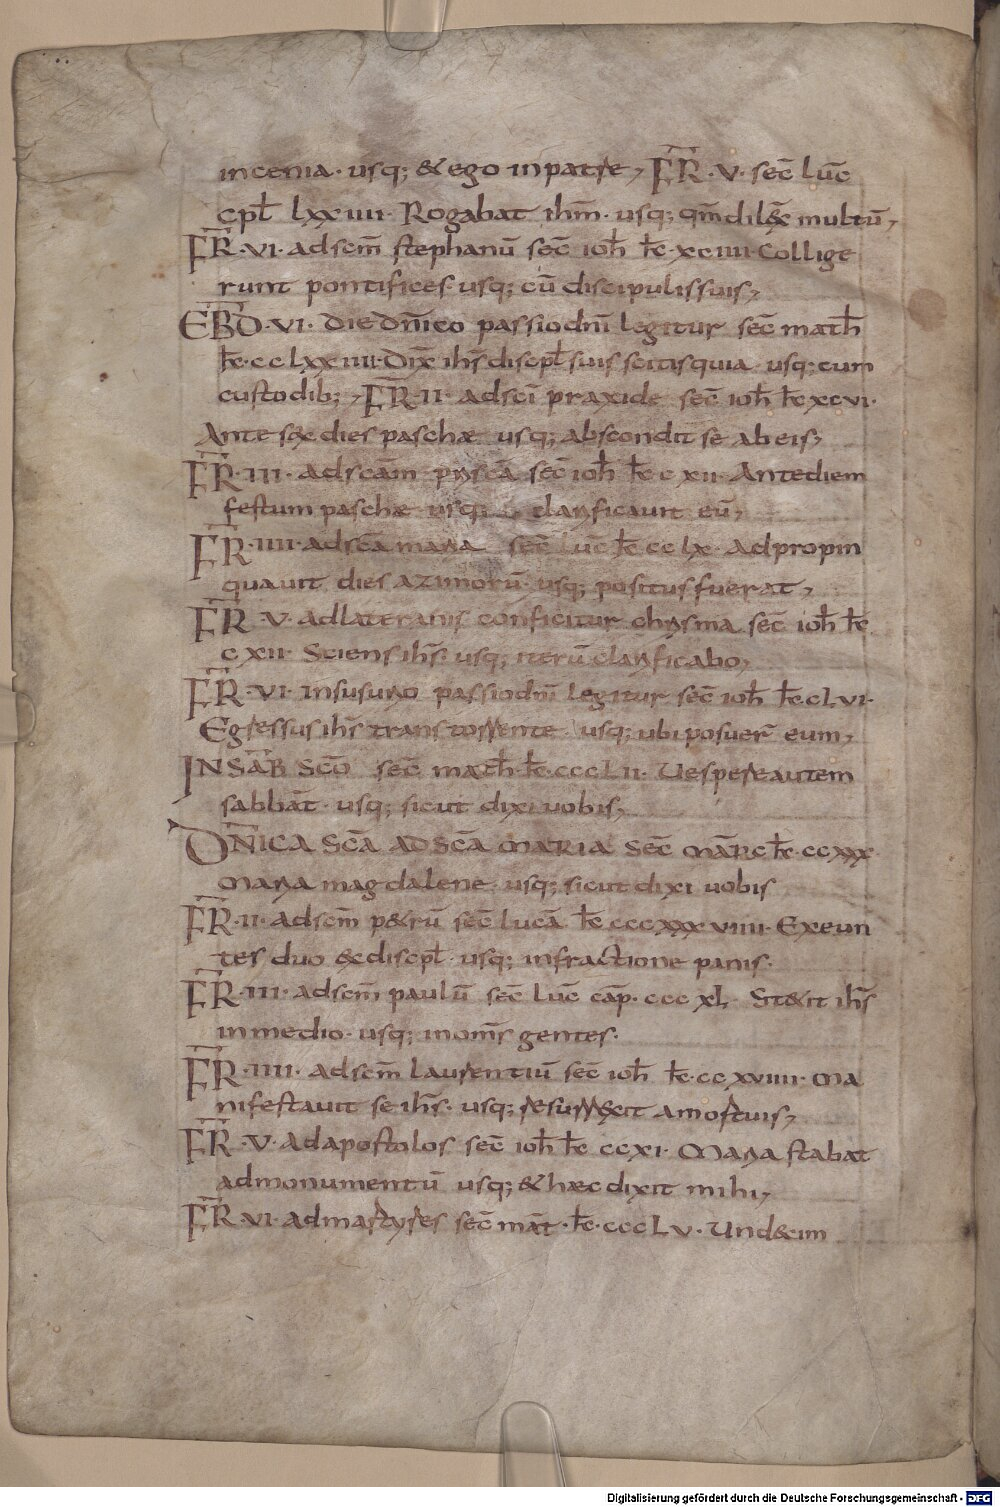 incenia· usq; & ego inpatre, FR̄·V· sec̄ luc̄
cpl̄ lxxiiii· Rogabat ihm̄· usq; qm̄ dil&̄ multū,
FR̄·VI· ad scm̄ stephanū sec̄ ioh̄ k̄·xciiii· Collige
runt pontifices· usq; cū discipulis suis,
EBD̄·VI· die dn̄ico passio dn̄i legitur sec̄ math̄
k̄·cclxxiiii· Dix̄ ihs̄ discpl̄ suis scitis quia usq; cum
custodib;, FR̄·II· ad sc̄i praxide sec̄ ioh̄ k̄ xcvi·
Ante sex dies paschæ usq; abscondit se ab eis,
FR̄·III· ad scām priscā sec̄ ioh̄ k̄ c xii· Ante diem
festum paschæ usq; clarificauit eū,
FR̄·IIII· ad scā maria sec̄ luc̄ k̄ cclx· Adpropin
quauit dies azimorū· usq; positus fuerat,
FR̄·V· ad lateranis conficitur chrisma sec̄ ioh̄ k̄
c xii· Sciens ihs̄· usq; iterū clarificabo,
FR̄·VI· in susurio passio dn̄i legitur sec̄ ioh̄ k̄·clvi·
Egressus ihs̄ trans torrente usq; ubi posuer̄ eum,
IN SAB̄ SCŌ sec̄ math̄· k̄·ccclii· Uespere autem
sabbat̄· usq; sicut dixi uobis,
DN̄ICA SCĀ AD SCĀ MARIA SEC̄ MĀRC k̄·ccxxx·
Maria magdalene· usq; sicut dixi uobis
FR̄·II· ad scm̄ p&rū sec̄ lucā k̄ cccxxxviiii· Exeun
tes duo ex discpl̄· usq; in fractione panis·
FR̄·III· ad scm̄ paulū sec̄ luc̄ cap̄· cccxl· St&it ihs̄
in medio· usq; in oms̄ gentes·
FR̄·IIII· ad scm̄ laurentiū sec̄ ioh̄ k̄·ccxviiii· Ma
nifestauit se ihs̄· usq; resurrexit a mortuis,
FR̄·V· ad apostolos sec̄ ioh̄ k̄ ccxi· Maria stabat
ad monumentū usq; & hæc dixit mihi,
FR̄·VI· ad martyres sec̄ mat̄· k̄·ccclv· Und&cim
Digitalisierung gefördert durch die Deutsche Forschungsgemeinschaft - DFG